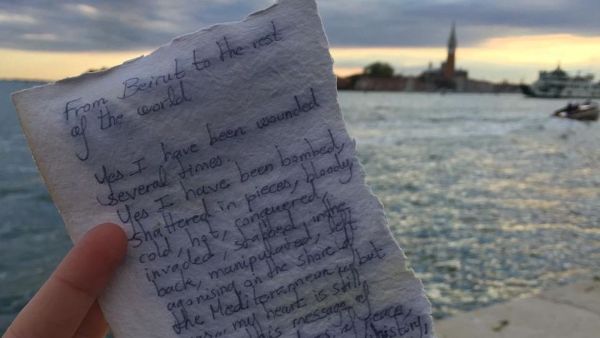 From Beirut to the rest
of the world
Yes I have been wounded
several times.
Yes I have been bombed,
shattered in pieces, bloody
cold, hot, conquered,
invaded, stabbed in the
back, manipulated, left
agonising on the shore of
the Mediterranean but
my heart is still
this message of
peace,
history,